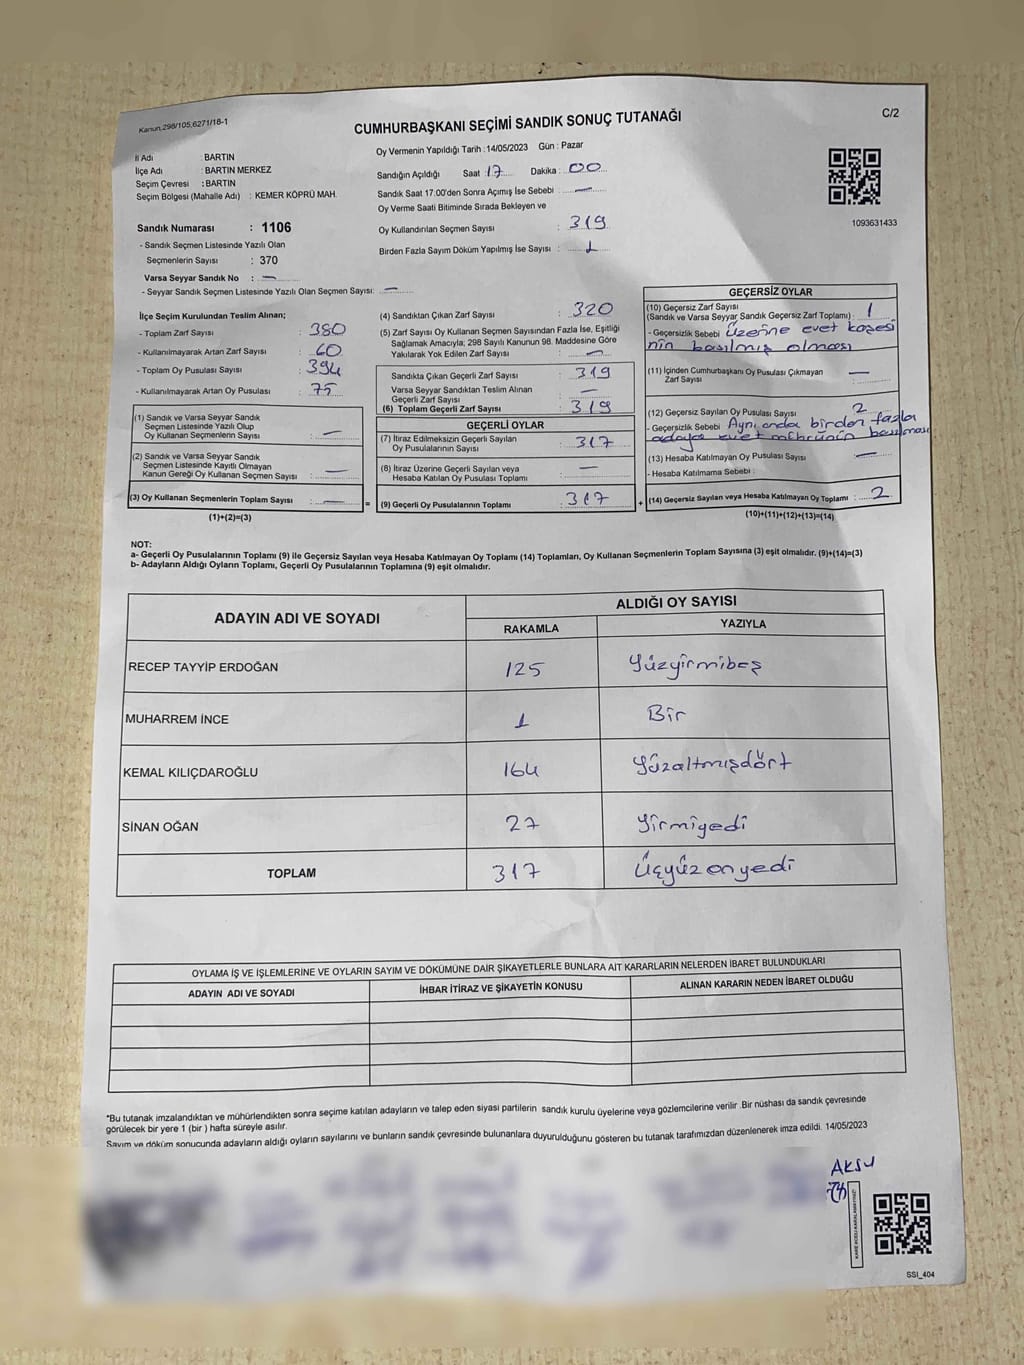 Kanun.298/105,6271/18-1
CUMHURBAŞKANI SEÇİMİ SANDIK SONUÇ TUTANAĞI
C/2
İl Adı : BARTIN
İlçe Adı : BARTIN MERKEZ
Seçim Çevresi : BARTIN
Seçim Bölgesi (Mahalle Adı) : KEMER KÖPRÜ MAH.
Oy Vermenin Yapıldığı Tarih : 14/05/2023 Gün : Pazar
Sandığın Açıldığı Saat 17 Dakika : 00
Sandık Saat 17:00'den Sonra Açımış İse Sebebi : —
Oy Verme Saati Bitiminde Sırada Bekleyen ve
Oy Kullandırılan Seçmen Sayısı : 319
Birden Fazla Sayım Döküm Yapılmış İse Sayısı : 1
1093631433
Sandık Numarası : 1106
- Sandık Seçmen Listesinde Yazılı Olan
Seçmenlerin Sayısı : 370
Varsa Seyyar Sandık No : —
- Seyyar Sandık Seçmen Listesinde Yazılı Olan Seçmen Sayısı: —
İlçe Seçim Kurulundan Teslim Alınan;
- Toplam Zarf Sayısı : 380
- Kullanılmayarak Artan Zarf Sayısı : 60
- Toplam Oy Pusulası Sayısı : 394
- Kullanılmayarak Artan Oy Pusulası : 75
(1) Sandık ve Varsa Seyyar Sandık
Seçmen Listesinde Yazılı Olup
Oy Kullanan Seçmenlerin Sayısı : —
(2) Sandık ve Varsa Seyyar Sandık
Seçmen Listesinde Kayıtlı Olmayan
Kanun Gereği Oy Kullanan Seçmen Sayısı : —
(3) Oy Kullanan Seçmenlerin Toplam Sayısı : — =
(1)+(2)=(3)
(4) Sandıktan Çıkan Zarf Sayısı : 320
(5) Zarf Sayısı Oy Kullanan Seçmen Sayısından Fazla İse, Eşitliği
Sağlamak Amacıyla; 298 Sayılı Kanunun 98. Maddesine Göre
Yakılarak Yok Edilen Zarf Sayısı : —
Sandıkta Çıkan Geçerli Zarf Sayısı : 319
Varsa Seyyar Sandıktan Teslim Alınan
Geçerli Zarf Sayısı : —
(6) Toplam Geçerli Zarf Sayısı : 319
GEÇERLİ OYLAR
(7) İtiraz Edilmeksizin Geçerli Sayılan
Oy Pusulalarının Sayısı : 317
(8) İtiraz Üzerine Geçerli Sayılan veya
Hesaba Katılan Oy Pusulası Toplamı : —
(9) Geçerli Oy Pusulalarının Toplamı : 317 +
GEÇERSİZ OYLAR
(10) Geçersiz Zarf Sayısı
(Sandık ve Varsa Seyyar Sandık Geçersiz Zarf Toplamı) : 1
- Geçersizlik Sebebi : Üzerine evet kaşesi
nin basılmış olması
(11) İçinden Cumhurbaşkanı Oy Pusulası Çıkmayan
Zarf Sayısı : —
(12) Geçersiz Sayılan Oy Pusulası Sayısı : 2
- Geçersizlik Sebebi : Aynı anda birden fazla
adaya evet mührünün basılması
(13) Hesaba Katılmayan Oy Pusulası Sayısı : —
- Hesaba Katılmama Sebebi :
(14) Geçersiz Sayılan veya Hesaba Katılmayan Oy Toplamı : 2
(10)+(11)+(12)+(13)=(14)
NOT:
a- Geçerli Oy Pusulalarının Toplamı (9) ile Geçersiz Sayılan veya Hesaba Katılmayan Oy Toplamı (14) Toplamları, Oy Kullanan Seçmenlerin Toplam Sayısına (3) eşit olmalıdır. (9)+(14)=(3)
b- Adayların Aldığı Oyların Toplamı, Geçerli Oy Pusulalarının Toplamına (9) eşit olmalıdır.
ADAYIN ADI VE SOYADI
ALDIĞI OY SAYISI
RAKAMLA YAZIYLA
RECEP TAYYİP ERDOĞAN 125 Yüzyirmibeş
MUHARREM İNCE 1 Bir
KEMAL KILIÇDAROĞLU 164 Yüzaltmışdört
SİNAN OĞAN 27 Yirmiyedi
TOPLAM 317 Üçyüzonyedi
OYLAMA İŞ VE İŞLEMLERİNE VE OYLARIN SAYIM VE DÖKÜMÜNE DAİR ŞİKAYETLERLE BUNLARA AİT KARARLARIN NELERDEN İBARET BULUNDUKLARI
ADAYIN ADI VE SOYADI İHBAR İTİRAZ VE ŞİKAYETİN KONUSU ALINAN KARARIN NEDEN İBARET OLDUĞU
*Bu tutanak imzalandıktan ve mühürlendikten sonra seçime katılan adayların ve talep eden siyasi partilerin sandık kurulu üyelerine veya gözlemcilerine verilir .Bir nüshası da sandık çevresinde
görülecek bir yere 1 (bir ) hafta süreyle asılır.
Sayım ve döküm sonucunda adayların aldığı oyların sayılarını ve bunların sandık çevresinde bulunanlara duyurulduğunu gösteren bu tutanak tarafımızdan düzenlenerek imza edildi. 14/05/2023
AKSU
SSI_404